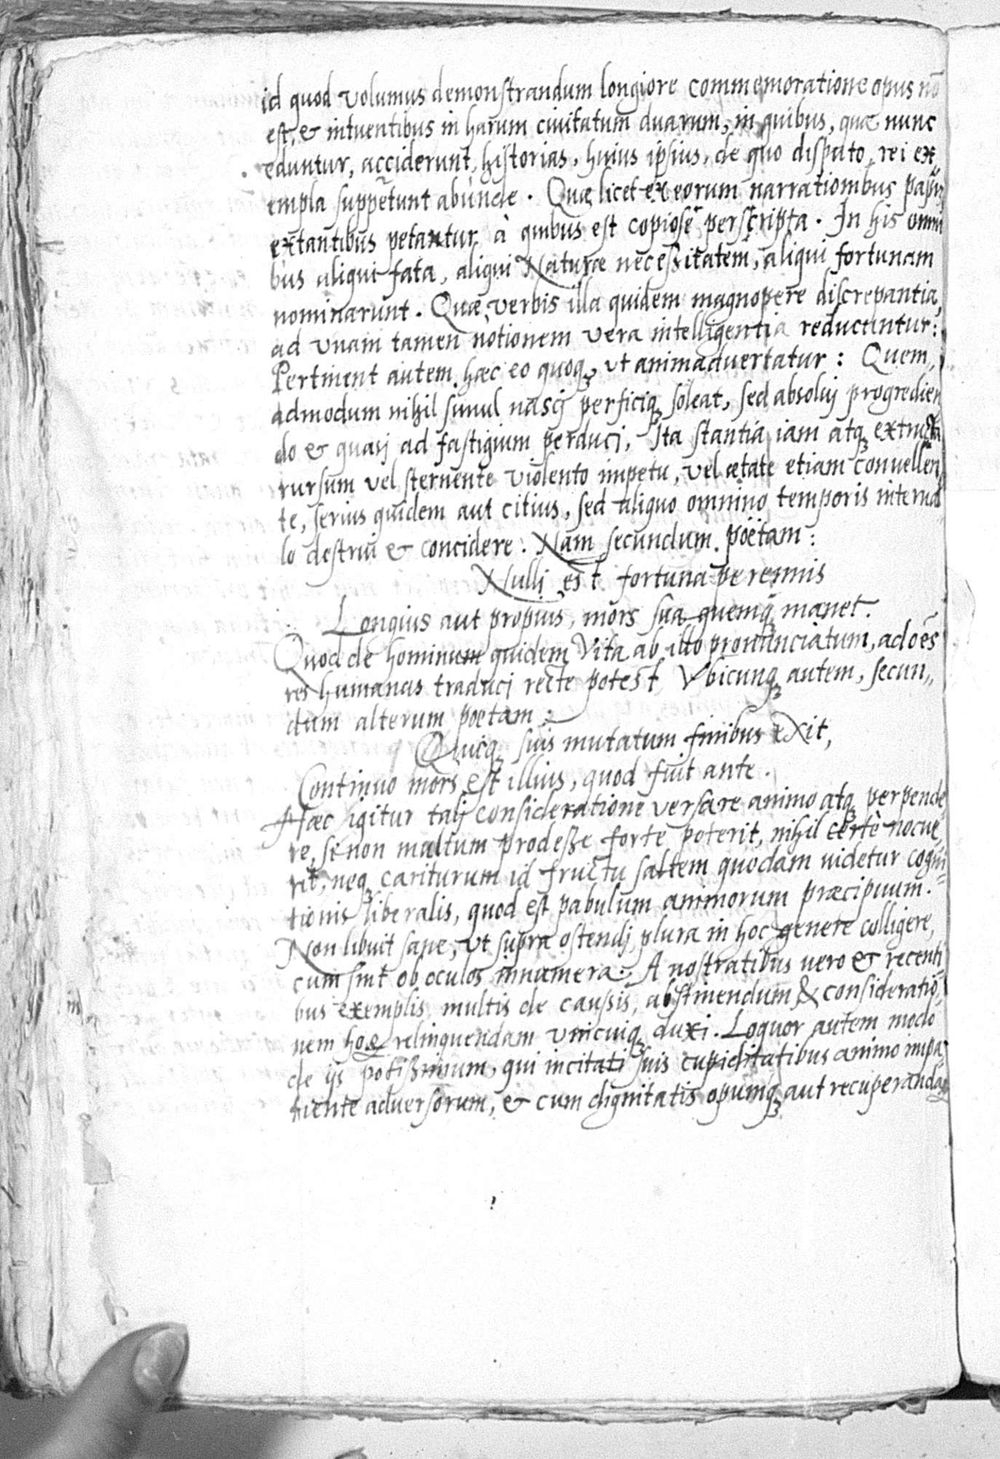 id quod volumus demonstrandum longiore commemoratione opus nō
est, & intuentibus in harum civitatum duarum, in quibus, quæ nunc
eduntur, acciderunt, historias, huius ipsius, de quo disputo, rei ex,,
empla suppetunt abunde. Quæ licet ex eorum narrationibus
extantibus petantur, à quibus est copiose perscripta. In his omni
bus aliqui fata, aliqui Naturæ necessitatem, aliqui fortunam
nominarunt. Quæ, verbis illa quidem magnopere discrepantia,
ad unam tamen notionem vera intelligentia reducuntur:
Pertinent autem hæc eo quoq, ut animadvertatur: Quem,,
admodum nihil simul nasci perficiq soleat, sed absolvi progredien
do & quasi ad fastigium perduci, Ita stantia iam atq extructa
rursum vel sternente violento impetu, vel ætate etiam convellen
te, serius quidem aut citius, sed aliquo omnino temporis interual
lo destrui & concidere. Nam secundum poëtam:
Nulli est fortuna perennis
Longius aut propius, mors sua quemq manet.
Quod de hominum quidem Vita ab illo pronunciatum, ad oēs
res humanas traduci recte potest Vbicunq autem, secun,,
dum alterum poetam
Quicq suis mutatum finibus exit,
Continuo mors est illius, quod fuit ante.
Hæc igitur tali consideratione versare animo atq perpende
re, si non multum prodesse forte poterit, nihil certè nocue
rit, neq cariturum id fructu saltem quodam videtur cogni
tionis liberalis, quod est pabulum animorum præcipuum.
Non libuit sane, ut supra ostendi, plura in hoc genere colligere,
cum sint ob oculos innumera. A nostratibus vero & recenti
bus exemplis multis de causis, abstinendum & consideratio,
nem relinquendam unicuiq duxi. Loquor autem modo
de ijs potissimum, qui incitati suis cupiditatibus animo impa
tiente adversorum, & cum dignitatis opumq aut recuperandaȝ